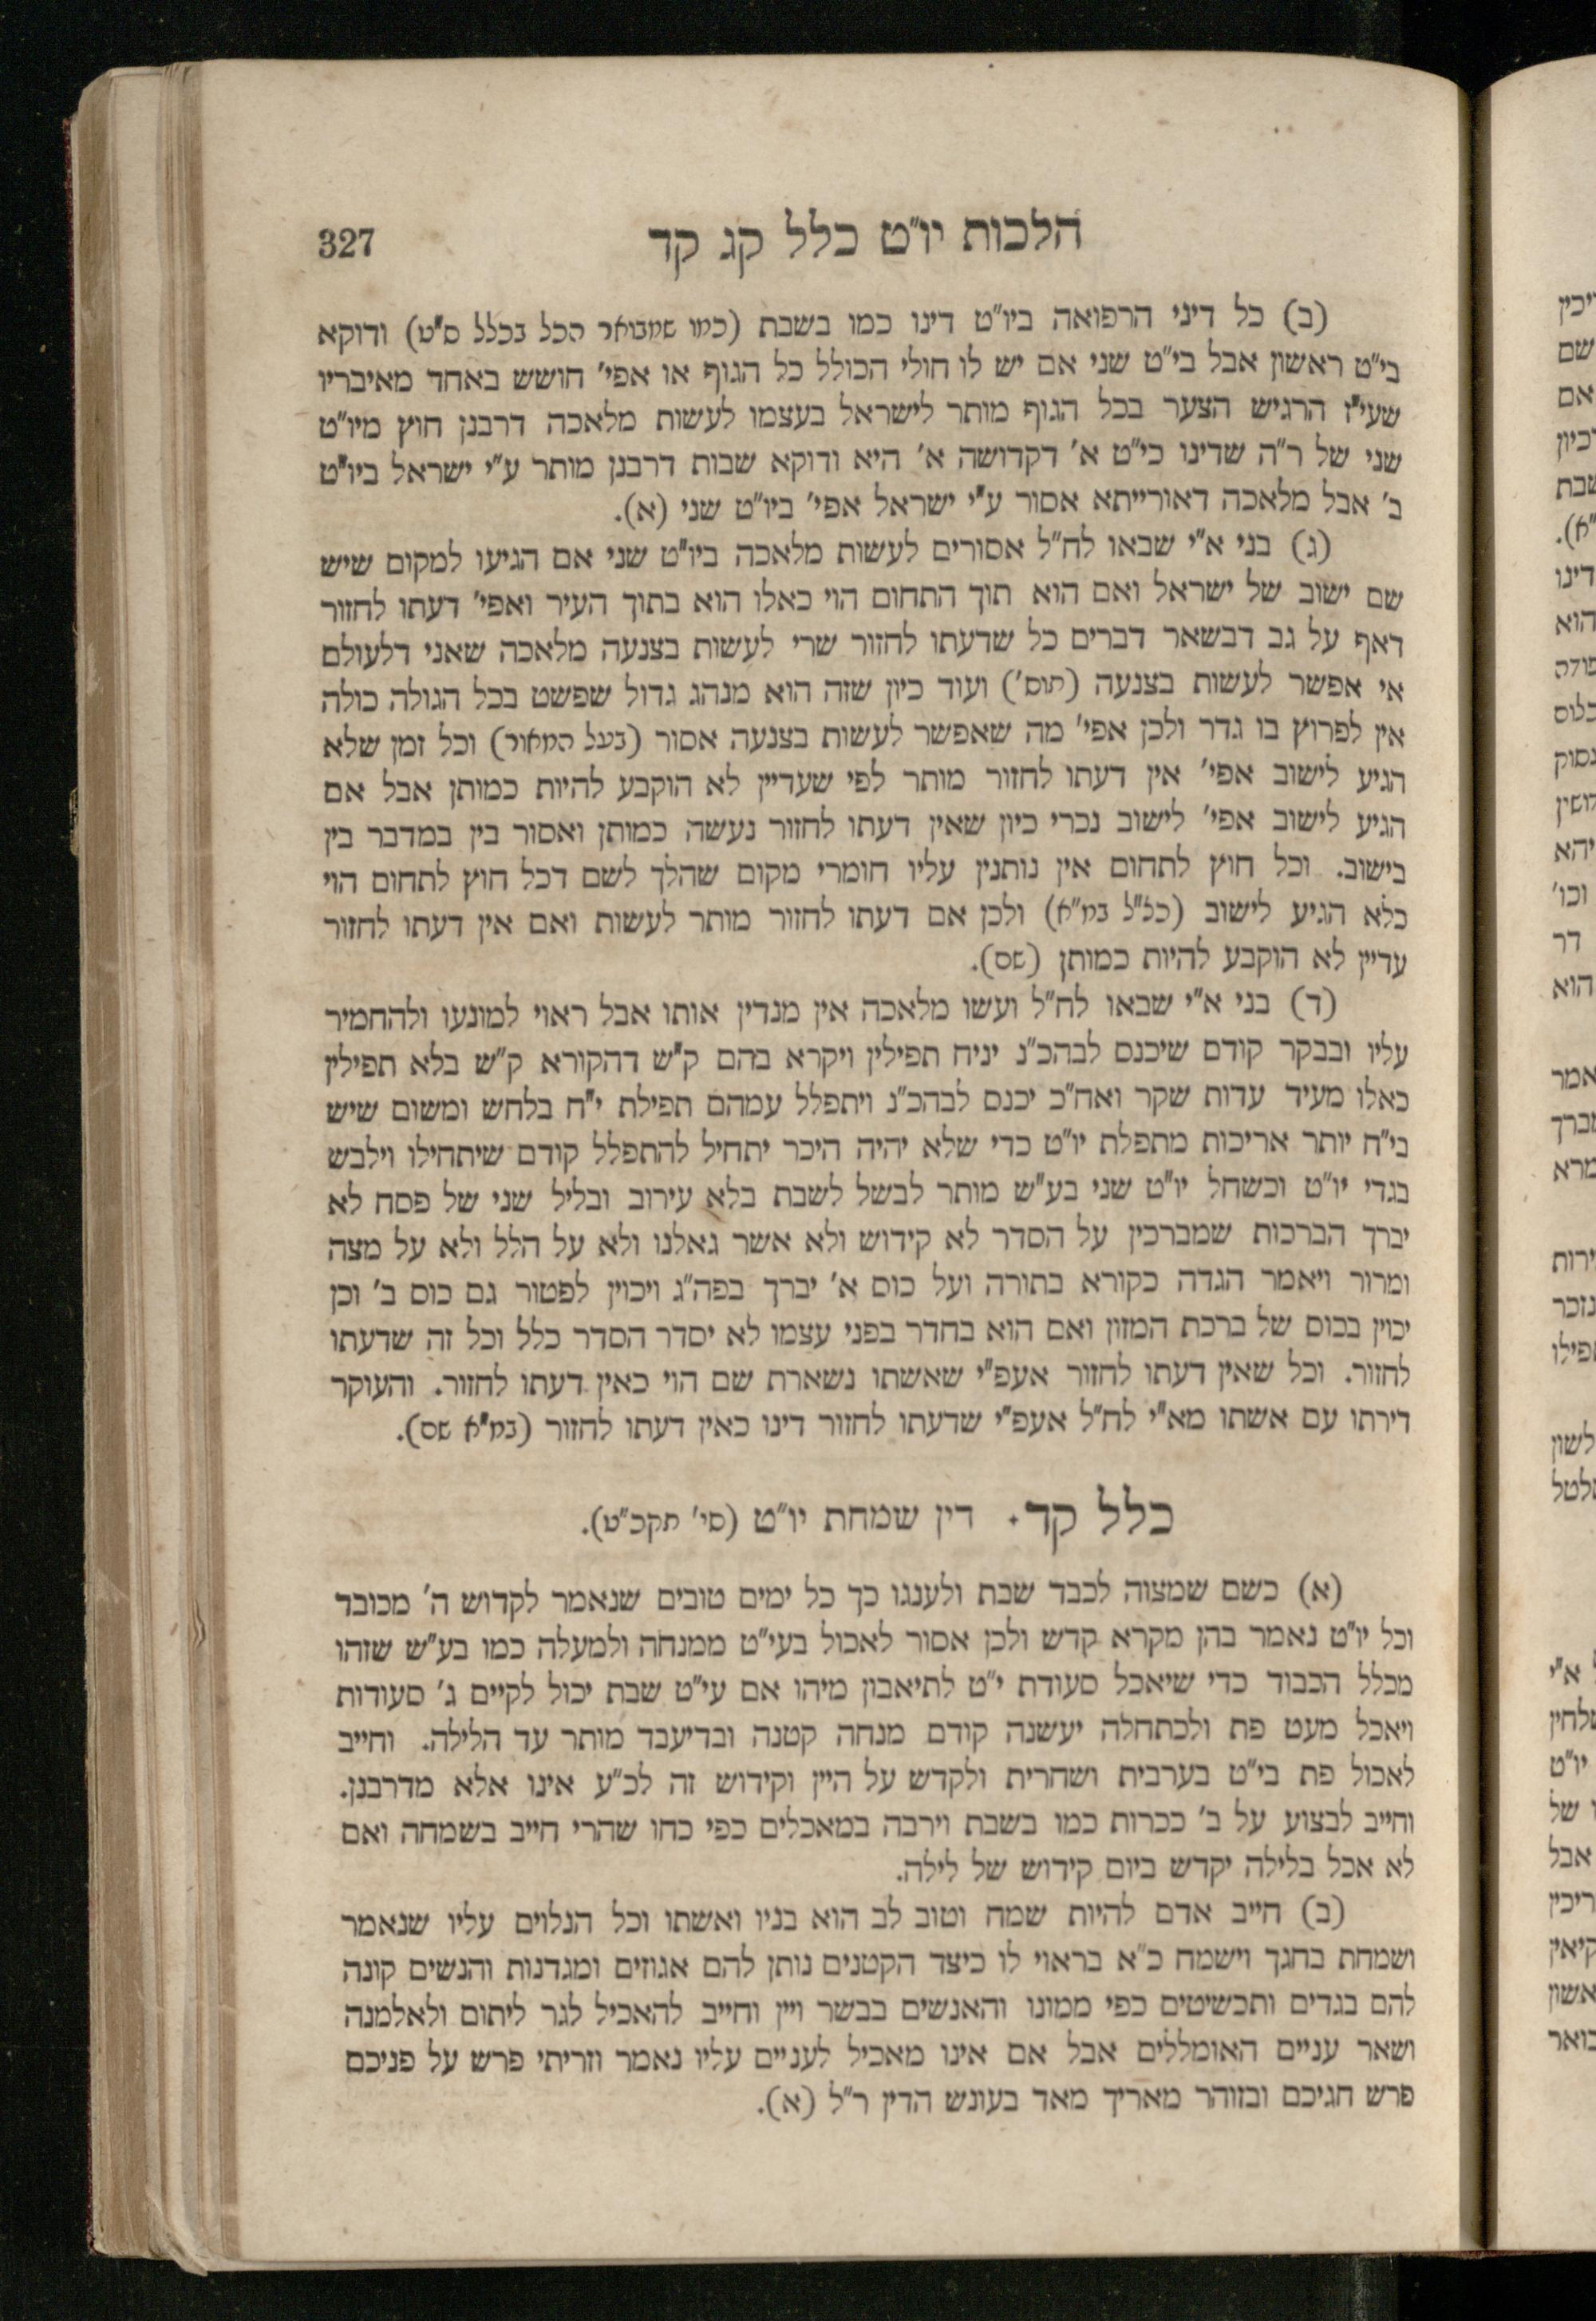 הלכות יו"ט כלל קג קד 327
(ב) כל דיני הרפואה ביו"ט דינו כמו בשבת (כמו שמבואר הכל בכלל ס"ט) ודוקא
בי"ט ראשון אבל בי"ט שני אם יש לו חולי הכולל כל הגוף או אפי' חושש באחד מאיבריו
שעי"ז הרגיש הצער בכל הגוף מותר לישראל בעצמו לעשות מלאכה דרבנן חוץ מיו"ט
שני של ר"ה שדינו כי"ט א' דקדושה א' היא ודוקא שבות דרבנן מותר ע"י ישראל ביו"ט
ב' אבל מלאכה דאורייתא אסור ע"י ישראל אפי' ביו"ט שני (א).
(ג) בני א"י שבאו לח"ל אסורים לעשות מלאכה ביו"ט שני אם הגיעו למקום שיש
שם ישוב של ישראל ואם הוא תוך התחום הוי כאלו הוא בתוך העיר ואפי' דעתו לחזור
דאף על גב דבשאר דברים כל שדעתו לחזור שרי לעשות בצנעה מלאכה שאני דלעולם
אי אפשר לעשות בצנעה (תוס') ועוד כיון שזה הוא מנהג גדול שפשט בכל הגולה כולה
אין לפרוץ בו גדר ולכן אפי' מה שאפשר לעשות בצנעה אסור (בעל המאור) וכל זמן שלא
הגיע לישוב אפי' אין דעתו לחזור מותר לפי שעדיין לא הוקבע להיות כמותן אבל אם
הגיע לישוב אפי' לישוב נכרי כיון שאין דעתו לחזור נעשה כמותן ואסור בין במדבר בין
בישוב. וכל חוץ לתחום אין נותנין עליו חומרי מקום שהלך לשם דכל חוץ לתחום הוי
כלא הגיע לישוב (כל"ל במ"א) ולכן אם דעתו לחזור מותר לעשות ואם אין דעתו לחזור
עדיין לא הוקבע להיות כמותן (שם).
(ד) בני א"י שבאו לח"ל ועשו מלאכה אין מנדין אותו אבל ראוי למונעו ולהחמיר
עליו ובבקר קודם שיכנם לבהכ"נ יניח תפילין ויקרא בהם ק"ש דהקורא ק"ש בלא תפילין
כאלו מעיד עדות שקר ואח"כ יכנם לבהכ"נ ויתפלל עמהם תפילת י"ח בלחש ומשום שיש
בי"ח יותר אריכות מתפלת יו"ט כדי שלא יהיה היכר יתחיל להתפלל קודם שיתחילו וילבש
בגדי יו"ט וכשחל יו"ט שני בע"ש מותר לבשל לשבת בלא עירוב ובליל שני של פסח לא
יברך הברכות שמברכין על הסדר לא קידוש ולא אשר גאלנו ולא על הלל ולא על מצה
ומרור ויאמר הגדה כקורא בתורה ועל כוס א' יברך בפה"ג ויכוין לפטור גם כוס ב' וכן
יכוין בכוס של ברכת המזון ואם הוא בחדר בפני עצמו לא יסדר הסדר כלל וכל זה שדעתו
לחזור. וכל שאין דעתו לחזור אעפ"י שאשתו נשארת שם הוי כאין דעתו לחזור. והעוקר
דירתו עם אשתו מא"י לח"ל אעפ"י שדעתו לחזור דינו כאין דעתו לחזור (במ"א שם).
כלל קד. דין שמחת יו"ט (סי' תקכ"ט).
(א) כשם שמצוה לכבד שבת ולענגו כך כל ימים טובים שנאמר לקדוש ה' מכובד
וכל יו"ט נאמר בהן מקרא קדש ולכן אסור לאכול בעי"ט ממנחה ולמעלה כמו בע"ש שזהו
מכלל הכבוד כדי שיאכל סעודת י"ט לתיאבון מיהו אם עי"ט שבת יכול לקיים ג' סעודות
ויאכל מעט פת ולכתחלה יעשנה קודם מנחה קטנה ובדיעבד מותר עד הלילה. וחייב
לאכול פת בי"ט בערבית ושחרית ולקדש על היין וקידוש זה לכ"ע אינו אלא מדרבנן.
וחייב לבצוע על ב' ככרות כמו בשבת וירבה במאכלים כפי כחו שהרי חייב בשמחה ואם
לא אכל בלילה יקדש ביום קידוש של לילה.
(ב) חייב אדם להיות שמח וטוב לב הוא בניו ואשתו וכל הנלוים עליו שנאמר
ושמחת בחגך וישמח כ"א בראוי לו כיצד הקטנים נותן להם אגוזים ומגדנות והנשים קונה
להם בגדים ותכשיטים כפי ממונו והאנשים בבשר ויין וחייב להאכיל לגר ליתום ולאלמנה
ושאר עניים האומללים אבל אם אינו מאכיל לעניים עליו נאמר וזריתי פרש על פניכם
פרש חגיכם ובזוהר מאריך מאד בעונש הדין ר"ל (א).